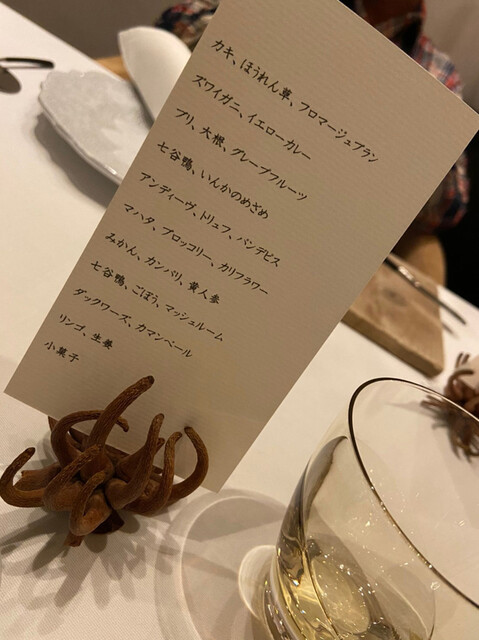 カキ、ほうれん草、フロマージュブラン
ズワイガニ、イエローカレー
ブリ、大根、グレープフルーツ
七谷鴨、いんかのめざめ
アンディーヴ、トリュフ、パンデピス
マハタ、ブロッコリー、カリフラワー
みかん、カンパリ、黄人参
七谷鴨、ごぼう、マッシュルーム
ダックワーズ、カマンベール
リンゴ、生姜
小菓子